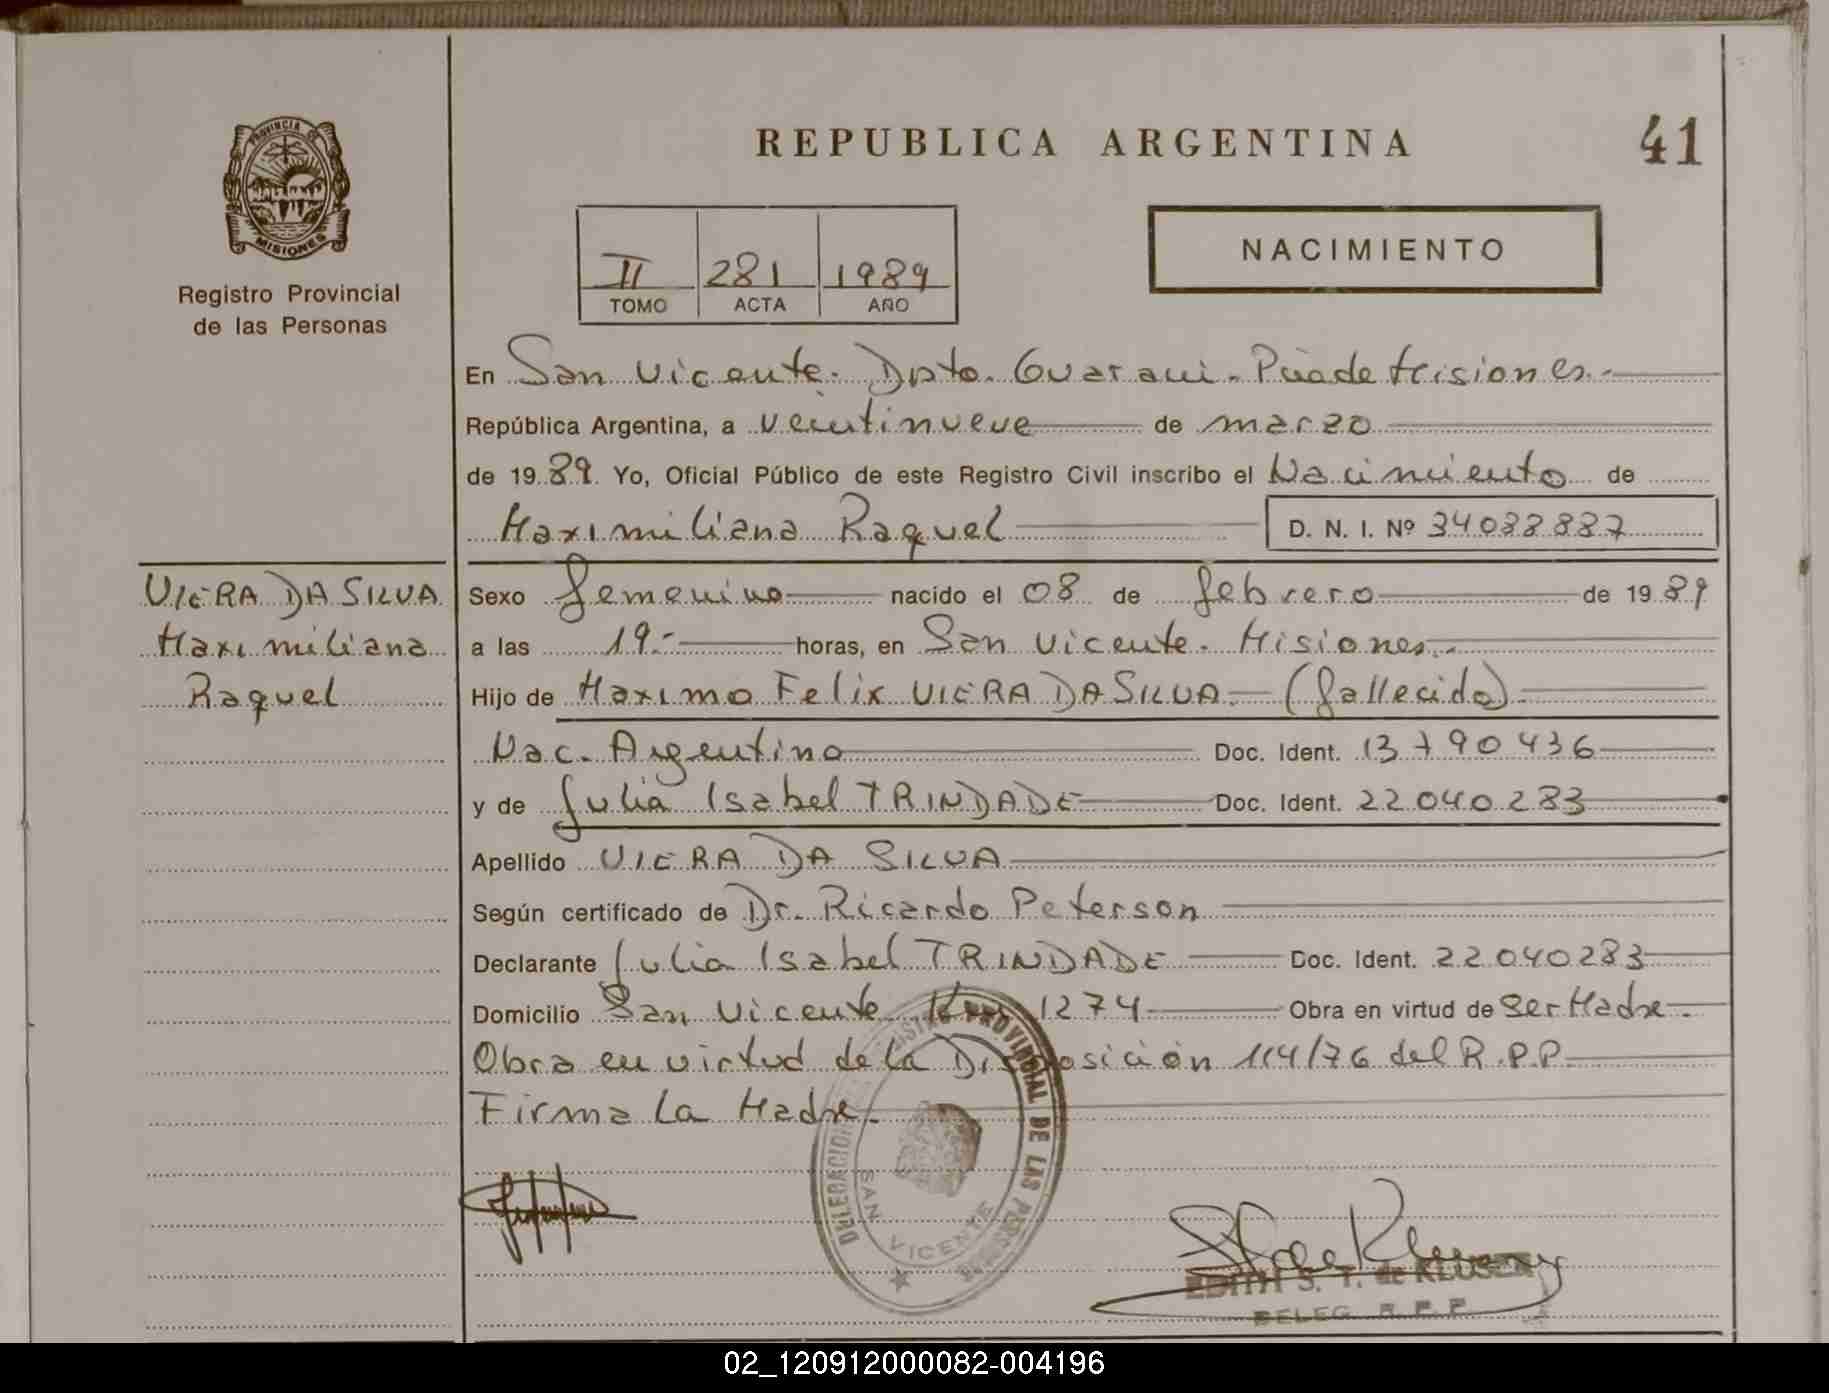 PROVINCIA DE
MISIONES
Registro Provincial
de las Personas
REPUBLICA ARGENTINA
41
II 281 1989
TOMO ACTA AÑO
NACIMIENTO
En San Vicente. Dpto. Guarani. Pciade Misiones.-
República Argentina, a veintinueve de marzo
de 19 89 Yo, Oficial Público de este Registro Civil inscribo el Nacimiento de
Maximiliana Raquel D. N. I. Nº 34038887
VIERA DA SILVA
Maximiliana
Raquel
Sexo femenino nacido el 08 de febrero de 19 89
a las 19.- horas, en San Vicente. Misiones.-
Hijo de Maximo Felix VIERA DA SILVA.- (fallecido).
Nac. Argentino Doc. Ident. 13790436
y de Julia Isabel TRINDADE Doc. Ident. 22040283
Apellido VIERA DA SILVA
Según certificado de Dr. Ricardo Peterson
Declarante Julia Isabel TRINDADE Doc. Ident. 22040283
Domicilio San Vicente Km 1274 Obra en virtud de Ser Madre.
Obra en virtud de la Disposición 114/76 del R.P.P.
Firma La Madre.
DELEGACION REGISTRO PROVINCIAL DE LAS PERSONAS
SAN VICENTE
EDITH S. T. de KLUSENER
DELEG. R. P. P.
02_120912000082-004196